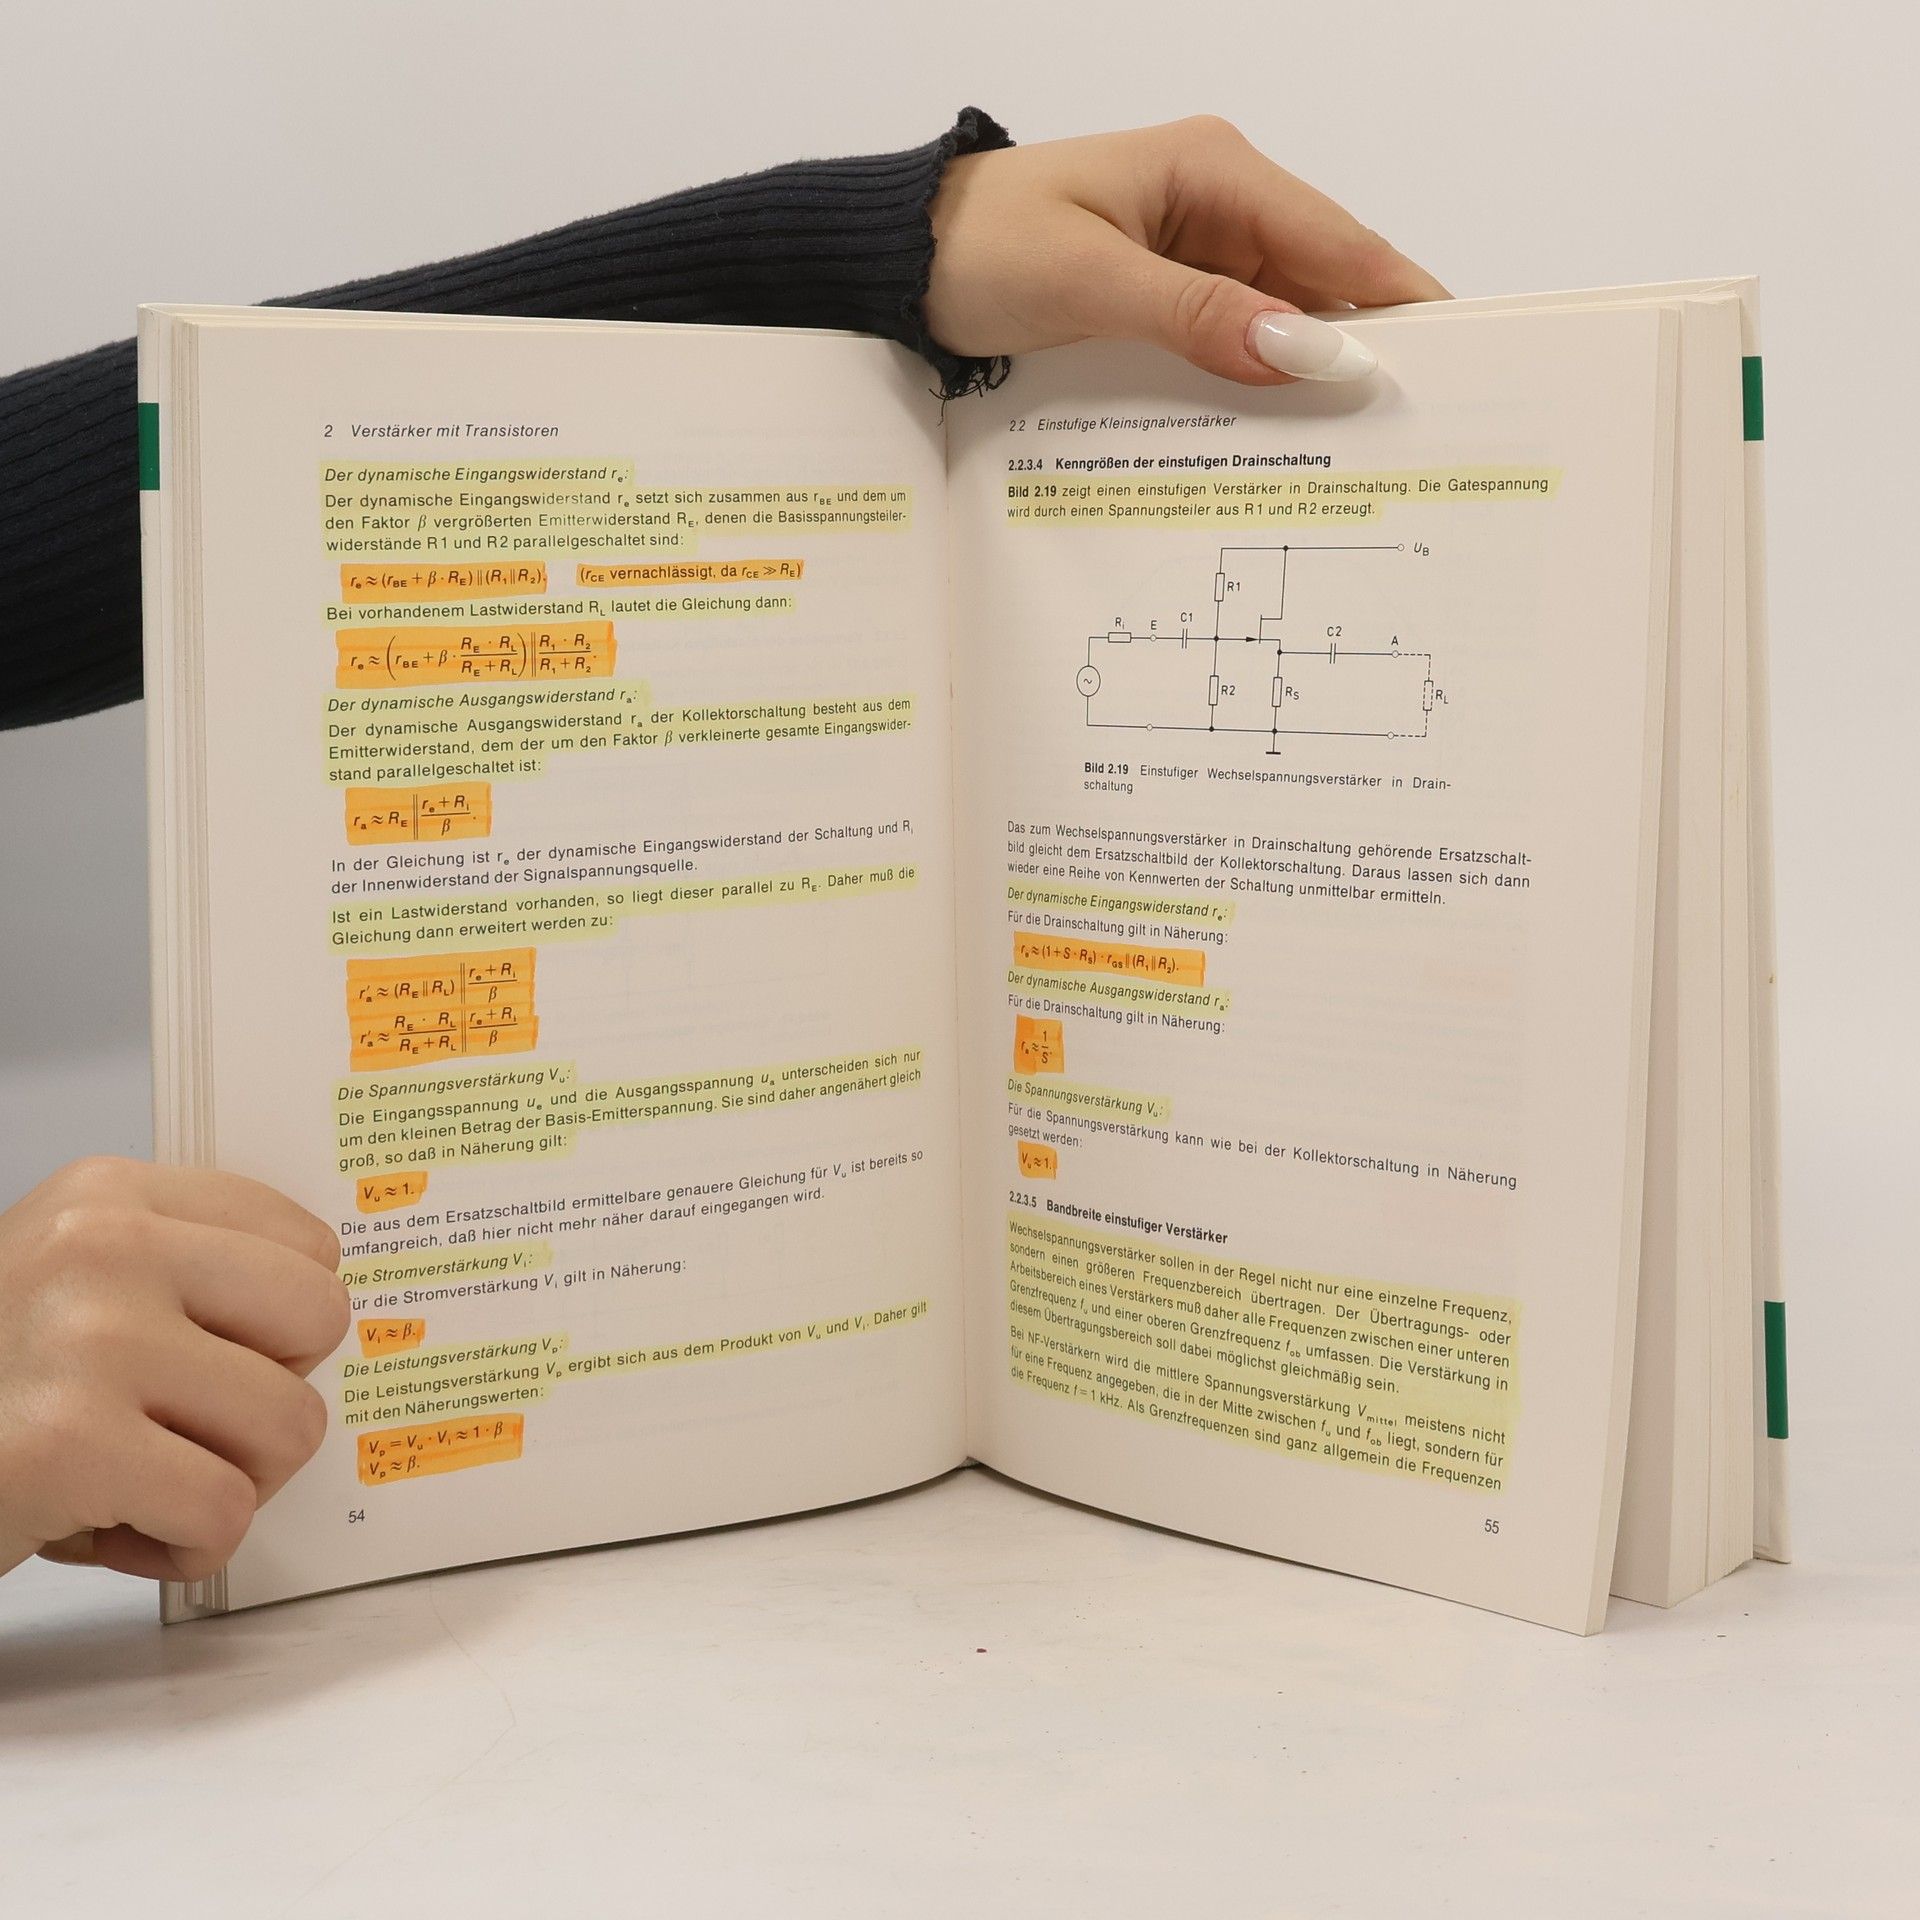 2 Verstärker mit Transistoren
Der dynamische Eingangswiderstand rₑ:
Der dynamische Eingangswiderstand rₑ setzt sich zusammen aus r_BE und dem um
den Faktor β vergrößerten Emitterwiderstand R_E, denen die Basisspannungsteiler-
widerstände R1 und R2 parallelgeschaltet sind:
rₑ ≈ (r_BE + β · R_E) ∥ (R₁ ∥ R₂). (r_CE vernachlässigt, da r_CE ≫ R_E)
Bei vorhandenem Lastwiderstand R_L lautet die Gleichung dann:
rₑ ≈ (r_BE + β · (R_E · R_L)/(R_E + R_L)) ∥ (R₁ · R₂)/(R₁ + R₂).
Der dynamische Ausgangswiderstand rₐ:
Der dynamische Ausgangswiderstand rₐ der Kollektorschaltung besteht aus dem
Emitterwiderstand, dem der um den Faktor β verkleinerte gesamte Eingangswider-
stand parallelgeschaltet ist:
rₐ ≈ R_E ∥ (rₑ + Rᵢ)/β.
In der Gleichung ist rₑ der dynamische Eingangswiderstand der Schaltung und Rᵢ
der Innenwiderstand der Signalspannungsquelle.
Ist ein Lastwiderstand vorhanden, so liegt dieser parallel zu R_E. Daher muß die
Gleichung dann erweitert werden zu:
r′ₐ ≈ (R_E ∥ R_L) ∥ (rₑ + Rᵢ)/β
r′ₐ ≈ (R_E · R_L)/(R_E + R_L) ∥ (rₑ + Rᵢ)/β
Die Spannungsverstärkung Vᵤ:
Die Eingangsspannung uₑ und die Ausgangsspannung uₐ unterscheiden sich nur
um den kleinen Betrag der Basis-Emitterspannung. Sie sind daher angenähert gleich
groß, so daß in Näherung gilt:
Vᵤ ≈ 1.
Die aus dem Ersatzschaltbild ermittelbare genauere Gleichung für Vᵤ ist bereits so
umfangreich, daß hier nicht mehr näher darauf eingegangen wird.
Die Stromverstärkung Vᵢ:
ür die Stromverstärkung Vᵢ gilt in Näherung:
Vᵢ ≈ β.
Die Leistungsverstärkung Vₚ:
Die Leistungsverstärkung Vₚ ergibt sich aus dem Produkt von Vᵤ und Vᵢ. Daher gilt
mit den Näherungswerten:
Vₚ = Vᵤ · Vᵢ ≈ 1 · β
Vₚ ≈ β.
54
2.2 Einstufige Kleinsignalverstärker
2.2.3.4 Kenngrößen der einstufigen Drainschaltung
Bild 2.19 zeigt einen einstufigen Verstärker in Drainschaltung. Die Gatespannung
wird durch einen Spannungsteiler aus R1 und R2 erzeugt.
U_B
R1
Rᵢ E C1
C2 A
R2 R_S R_L
Bild 2.19 Einstufiger Wechselspannungsverstärker in Drain-
schaltung
Das zum Wechselspannungsverstärker in Drainschaltung gehörende Ersatzschalt-
bild gleicht dem Ersatzschaltbild der Kollektorschaltung. Daraus lassen sich dann
wieder eine Reihe von Kennwerten der Schaltung unmittelbar ermitteln.
Der dynamische Eingangswiderstand rₑ:
Für die Drainschaltung gilt in Näherung:
rₑ ≈ (1 + S · R_S) · r_GS ∥ (R₁ ∥ R₂).
Der dynamische Ausgangswiderstand rₐ:
Für die Drainschaltung gilt in Näherung:
rₐ ≈ 1/S.
Die Spannungsverstärkung Vᵤ:
Für die Spannungsverstärkung kann wie bei der Kollektorschaltung in Näherung
gesetzt werden:
Vᵤ ≈ 1.
2.2.3.5 Bandbreite einstufiger Verstärker
Wechselspannungsverstärker sollen in der Regel nicht nur eine einzelne Frequenz,
sondern einen größeren Frequenzbereich übertragen. Der Übertragungs- oder
Arbeitsbereich eines Verstärkers muß daher alle Frequenzen zwischen einer unteren
Grenzfrequenz fᵤ und einer oberen Grenzfrequenz f_ob umfassen. Die Verstärkung in
diesem Übertragungsbereich soll dabei möglichst gleichmäßig sein.
Bei NF-Verstärkern wird die mittlere Spannungsverstärkung V_mittel meistens nicht
für eine Frequenz angegeben, die in der Mitte zwischen fᵤ und f_ob liegt, sondern für
die Frequenz f = 1 kHz. Als Grenzfrequenzen sind ganz allgemein die Frequenzen
55